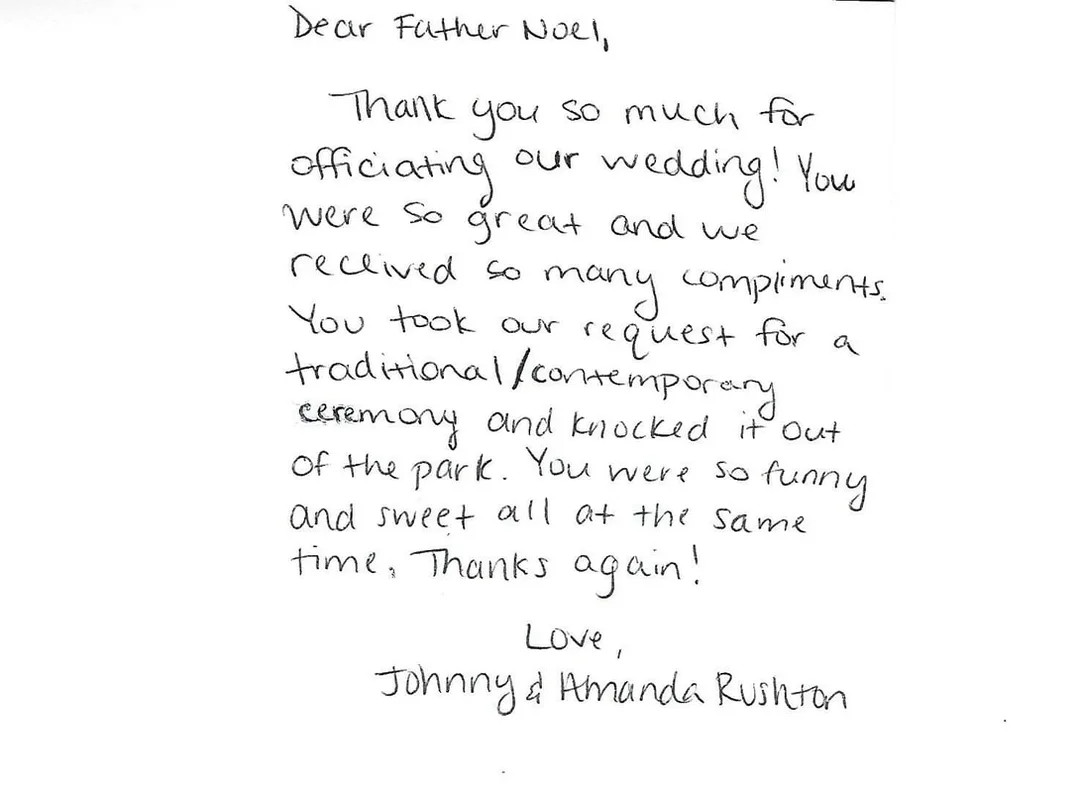 Dear Father Noel,
Thank you so much for
officiating our wedding! You
were so great and we
received so many compliments.
You took our request for a
traditional/contemporary
ceremony and knocked it out
of the park. You were so funny
and sweet all at the same
time. Thanks again!
Love,
Johnny & Amanda Rushton